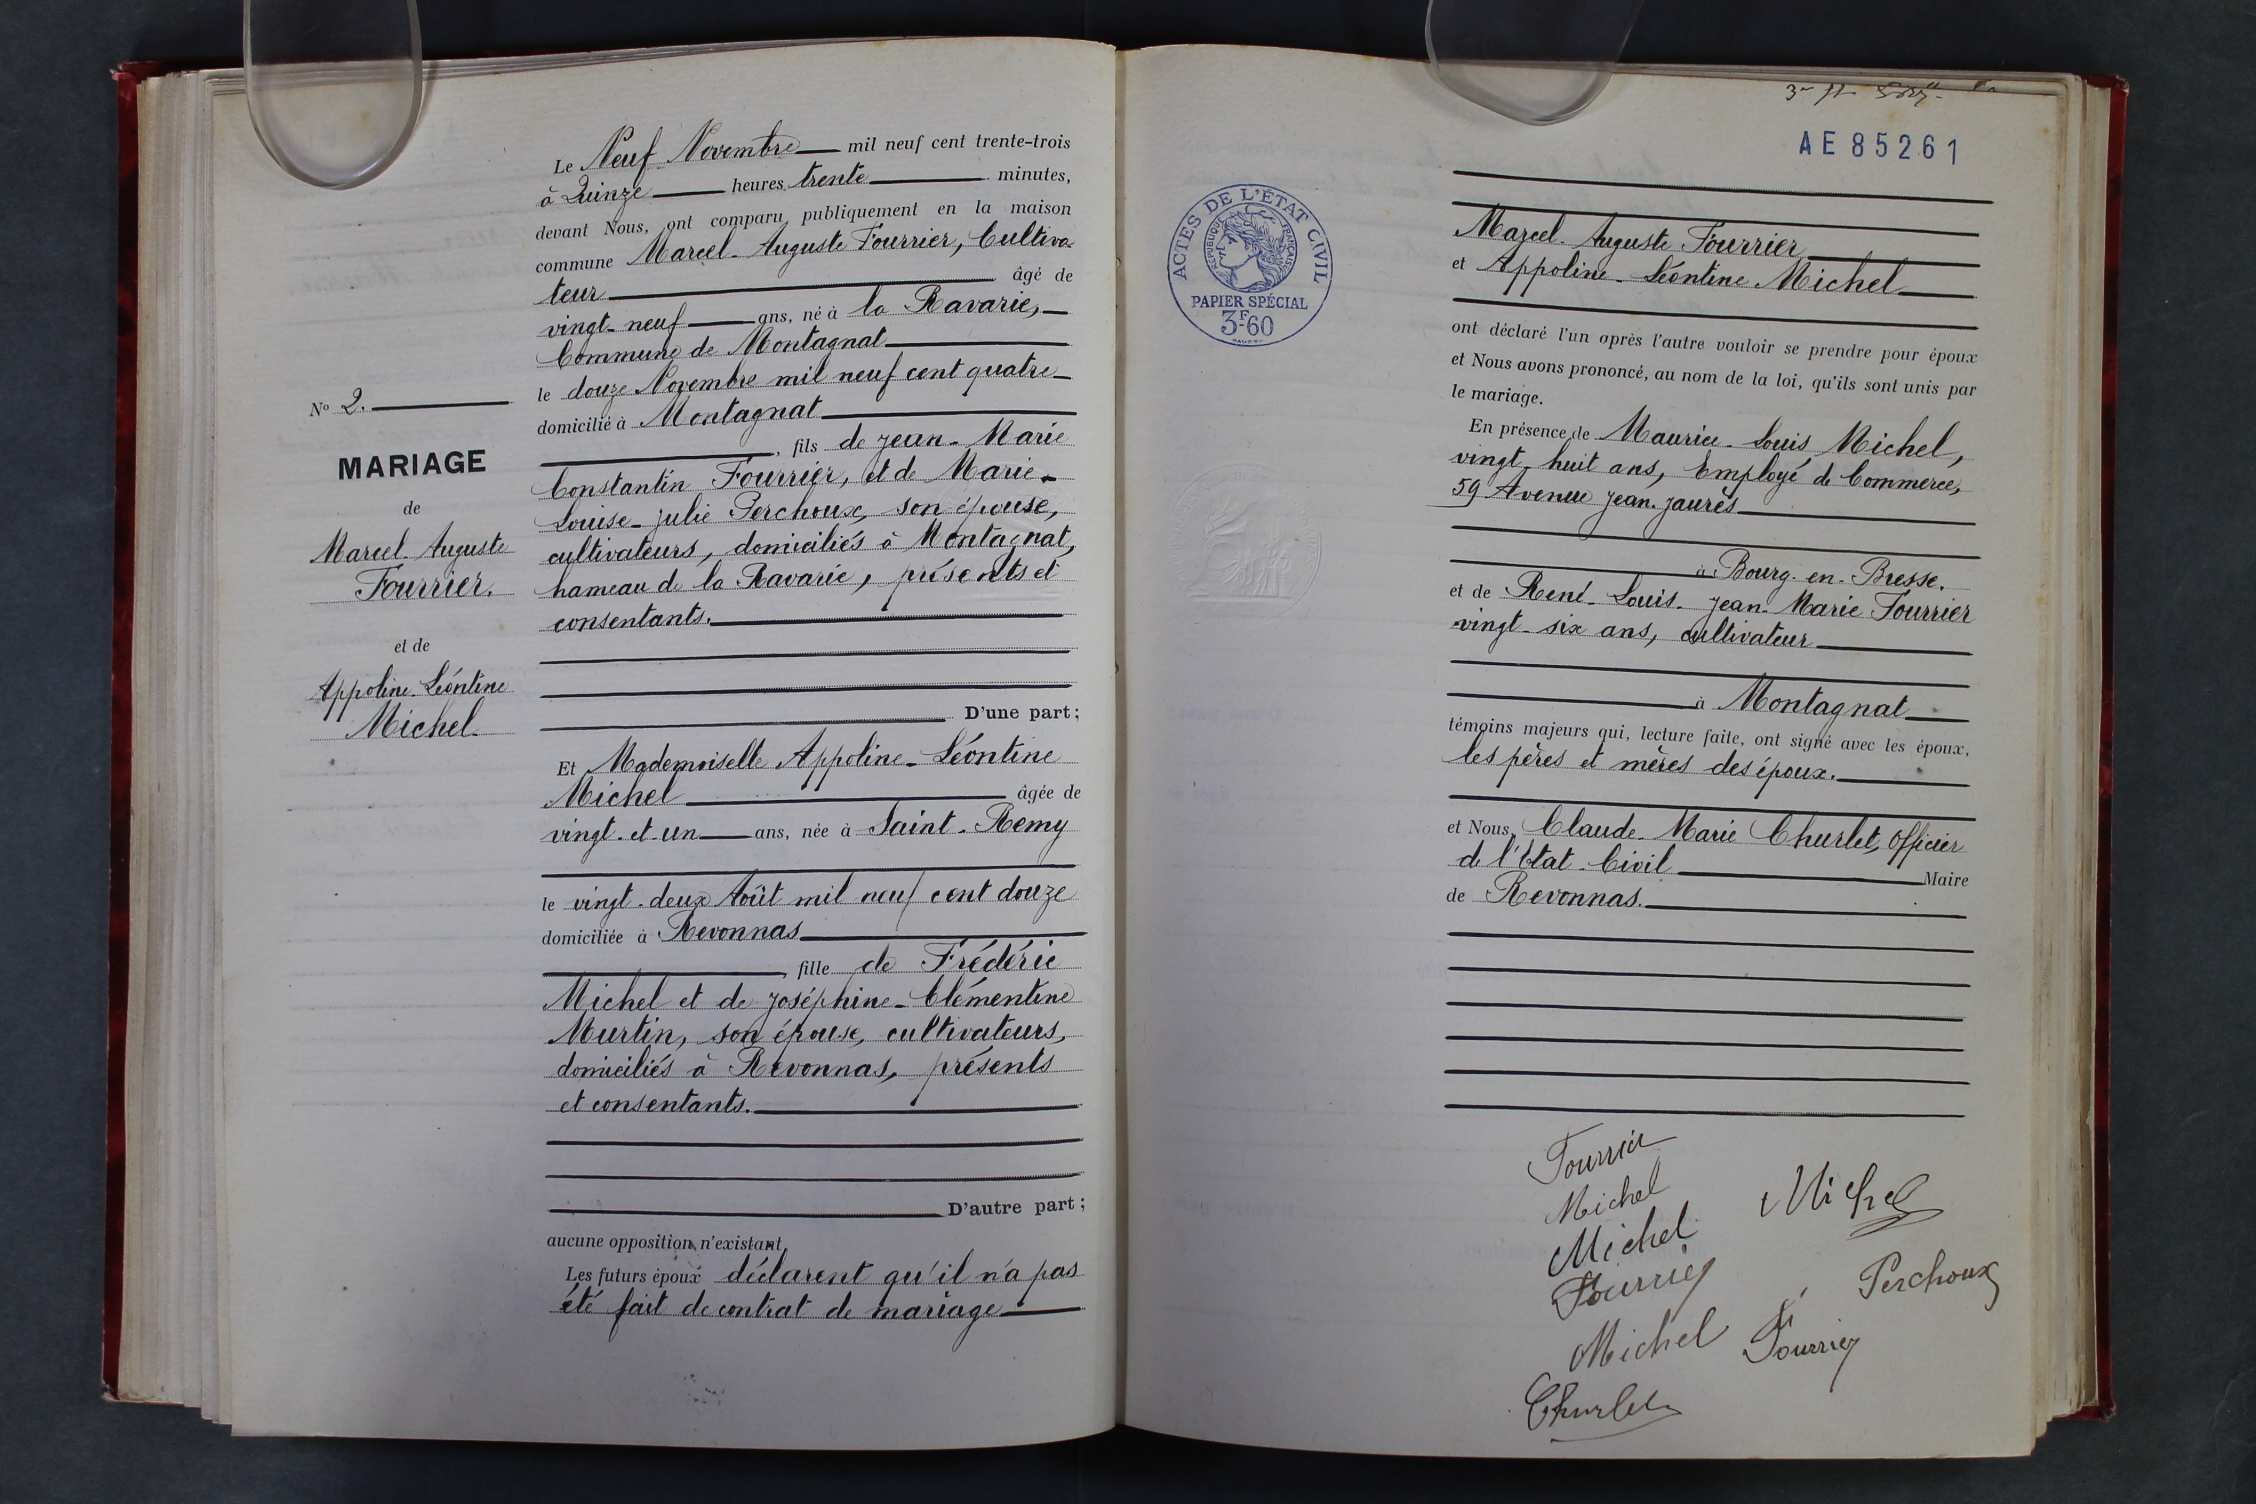 Le Neuf Novembre mil neuf cent trente-trois
à Quinze heures trente minutes,
devant Nous, ont comparu publiquement en la maison
commune Marcel-Auguste Fourrier, Cultiva-
teur âgé de
vingt-neuf ans, né à la Ravarie,
Commune de Montagnat
le douze Novembre mil neuf cent quatre
domicilié à Montagnat
, fils de Jean-Marie
Constantin Fourrier, et de Marie-
Louise-Julie Perchoux, son épouse,
cultivateurs, domiciliés à Montagnat,
hameau de la Ravarie, présents et
consentants.
D'une part;
Et Mademoiselle Appoline-Léontine
Michel âgée de
vingt-et-un ans, née à Saint-Remy
le vingt-deux Août mil neuf cent douze
domiciliée à Revonnas
, fille de Frédéric
Michel et de Joséphine-Clémentine
Murtin, son épouse, cultivateurs,
domiciliés à Revonnas, présents
et consentants.
D'autre part;
aucune opposition n'existant
Les futurs époux déclarent qu'il n'a pas
été fait de contrat de mariage
No 2.
MARIAGE
de
Marcel-Auguste
Fourrier.
et de
Appoline-Léontine
Michel
AE85261
ACTES DE L'ÉTAT CIVIL
RÉPUBLIQUE FRANÇAISE
PAPIER SPÉCIAL
3F60
Marcel-Auguste Fourrier
et Appoline-Léontine Michel
ont déclaré l'un après l'autre vouloir se prendre pour époux
et Nous avons prononcé, au nom de la loi, qu'ils sont unis par
le mariage.
En présence de Maurice-Louis Michel,
vingt-huit ans, Employé de Commerce,
59 Avenue Jean-Jaurès
à Bourg-en-Bresse.
et de René-Louis-Jean-Marie Fourrier
vingt-six ans, cultivateur
à Montagnat
témoins majeurs qui, lecture faite, ont signé avec les époux,
les pères et mères des époux.
et Nous, Claude-Marie Churlet, Officier
de l'Etat-Civil Maire
de Revonnas.
Fourrier
Michel
Michel
Michel
Fourrier
Perchoux
Michel
Fourrier
Churlet